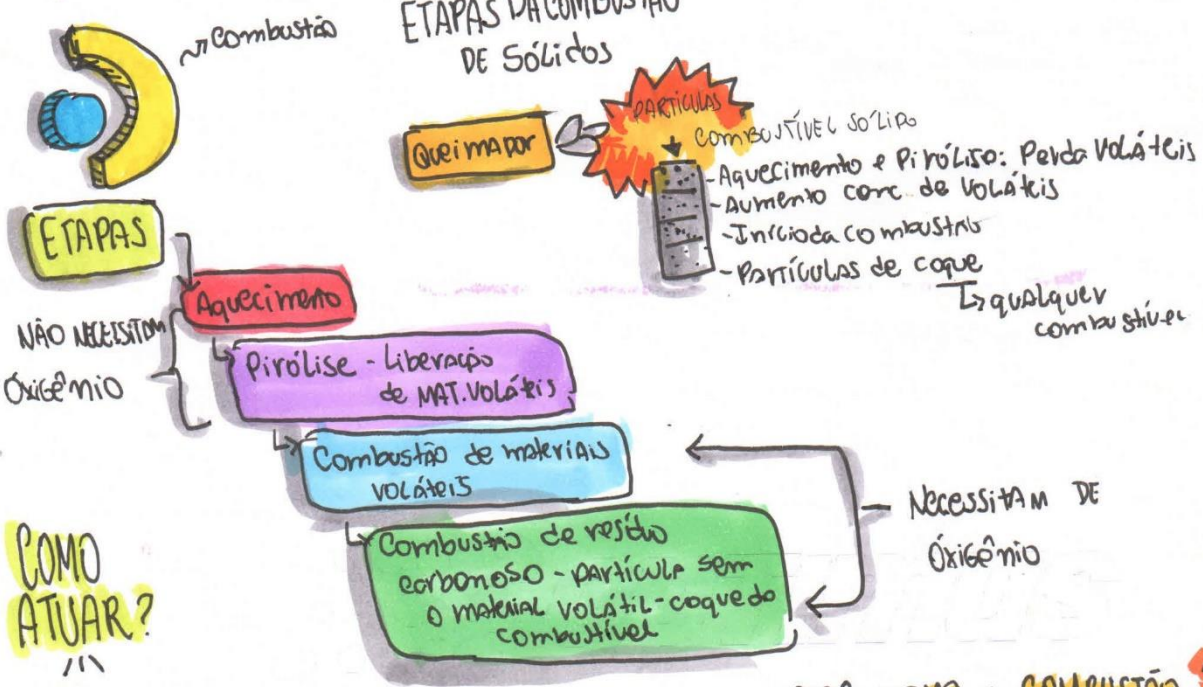 Combustão
ETAPAS DA COMBUSTÃO
DE SÓLIDOS
Queimador
PARTÍCULAS
COMBUSTÍVEL SÓLIDO
- Aquecimento e Pirólise: Perda VOLÁTEIS
- Aumento conc. de VOLÁTEIS
- Início da combustão
- Partículas de coque
qualquer
combustível
ETAPAS
Aquecimento
NÃO NECESSITAM
OXIGÊNIO
Pirólise - Liberação
de MAT. VOLÁTEIS
Combustão de materiais
VOLÁTEIS
Combustão de resíduo
carbonoso - partícula sem
o material VOLÁTIL - coque do
combustível
Necessitam DE
OXIGÊNIO
COMO
ATUAR?
COMBUSTÃO